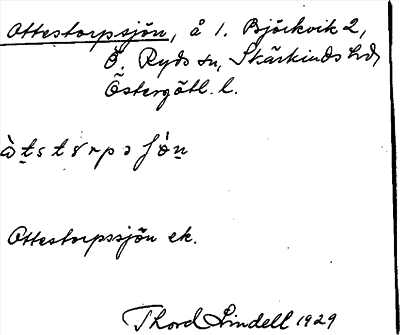 Ottestorpssjön, å 1. Björkvik 2,
Ö. Ryds sn, Skärkinds hd,
Östergötl. l.
Ottestorpssjön ek.
Thord Lindell 1929